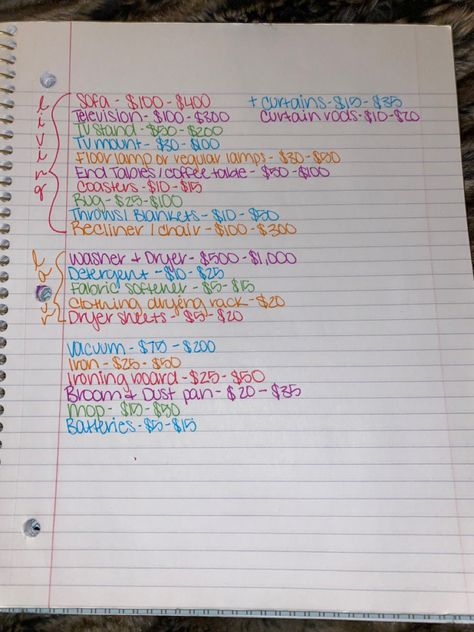 living
Sofa - $100 - $400
Television - $100 - $300
TV stand - $50 - $200
TV mount - $30 - $100
Floor lamp or regular lamps - $30 - $50
End Tables / coffee table - $50 - $100
Coasters - $10 - $15
Rug - $25 - $100
Throws / Blankets - $10 - $50
Recliner / chair - $100 - $300
+ curtains - $15 - $35
curtain rods - $10 - $20
Washer + Dryer - $500 - $1,000
Detergent - $10 - $25
Fabric softener - $5 - $15
Clothing drying rack - $20
Dryer sheets - $5 - $20
Vacuum - $75 - $200
Iron - $25 - $50
Ironing board - $25 - $50
Broom + Dust pan - $20 - $35
Mop - $15 - $50
Batteries - $5 - $15